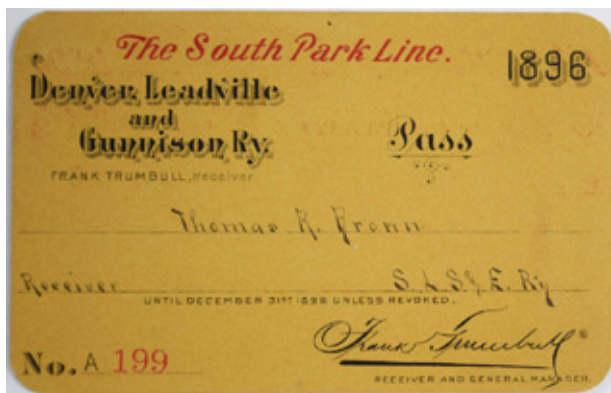 The South Park Line.
1896
Denver, Leadville
and
Gunnison Ry.
Pass
FRANK TRUMBULL, Receiver
Thomas R. Brown
Receiver S. L. S. & E. Ry
UNTIL DECEMBER 31ST 1896 UNLESS REVOKED.
Frank Trumbull
No. A 199
RECEIVER AND GENERAL MANAGER.